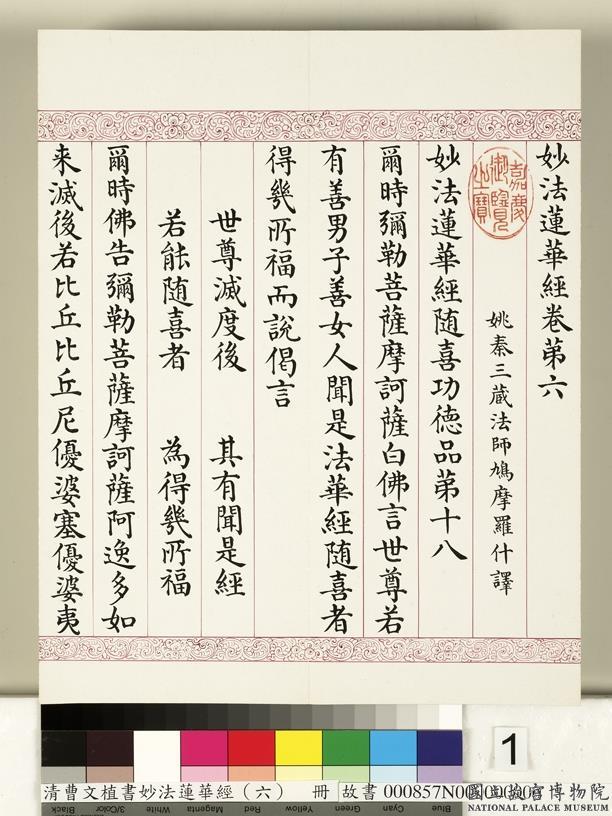 妙法蓮華經卷第六
嘉慶御覽之寶
姚秦三藏法師鳩摩羅什譯
妙法蓮華經随喜功德品第十八
爾時彌勒菩薩摩訶薩白佛言世尊若
有善男子善女人聞是法華經随喜者
得幾所福而說偈言
世尊滅度後 其有聞是經
若能随喜者 為得幾所福
爾時佛告彌勒菩薩摩訶薩阿逸多如
来滅後若比丘比丘尼優婆塞優婆夷
1
清曹文植書妙法蓮華經(六) 冊 故書 000857N000000000
國立故宮博物院
NATIONAL PALACE MUSEUM
Black 3/Color White Magenta Red Yellow Green Cyan Blue